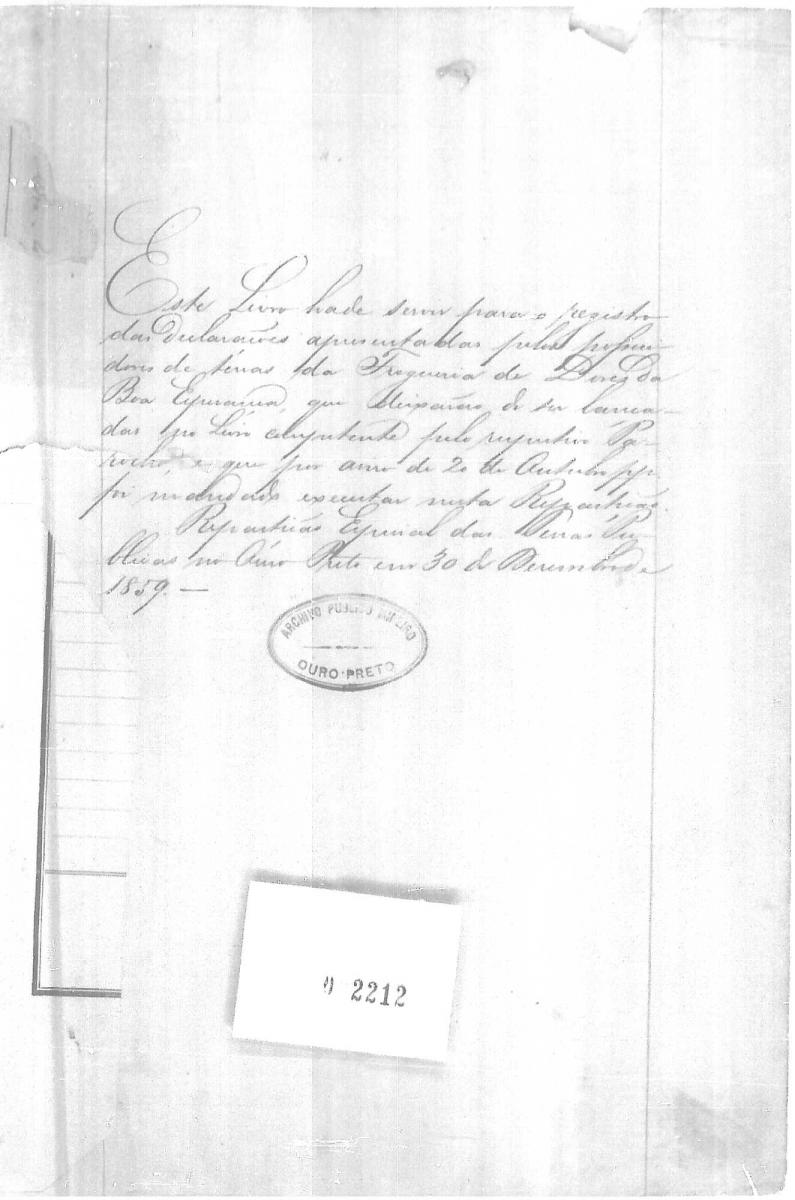 Este Livro hade servir para o registro
das declarações apresentadas pelos possui-
dores de terras da Freguezia de Dores da
Boa Esperança, que deixarão de ser lança-
das no Livro competente pelo respectivo Pa-
rocho, e que por de 20 de Outubro pp
foi mandado executar nesta Repartição.
Repartição Especial das Terras Pu-
blicas no Ouro Preto em 30 de Dezembro de
1859. —
ARCHIVO PUBLICO MINEIRO
OURO-PRETO
2212